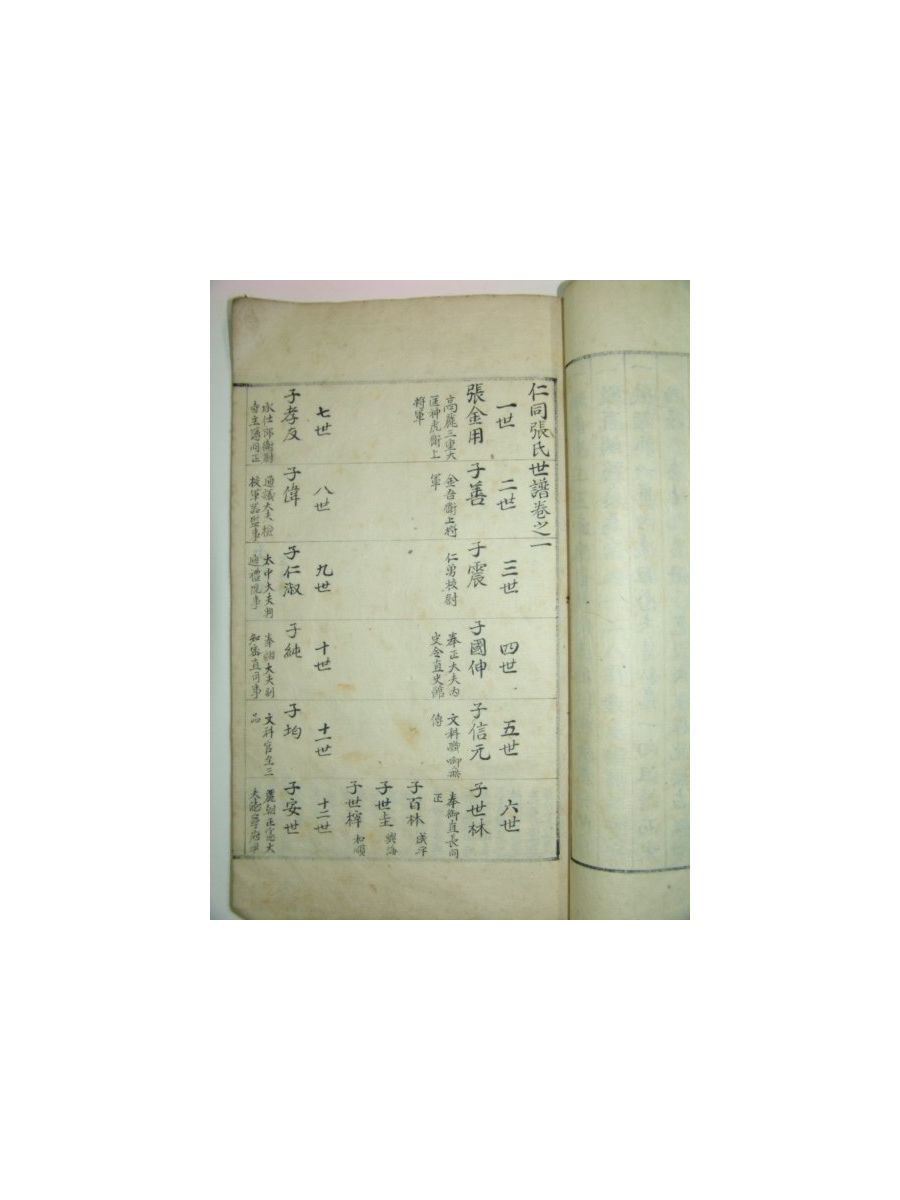 仁同張氏世譜卷之一
一世
張金用
高麗三重大
匡神虎衛上
將軍
二世
子善
金吾衛上將
軍
三世
子震
仁勇校尉
四世
子國伸
奉正大夫內
史令直史館
五世
子信元
文科職
傳
六世
子世林
奉御直長同
正
子百林
子世圭
興海
子世
和順
七世
子孝友
承仕郎衛尉
寺主簿同正
八世
子偉
通議大夫檢
校軍器監事
九世
子仁淑
太中大夫判
通禮院事
十世
子純
奉翊大夫副
知密直司事
十一世
子均
文科官至三
品
十二世
子安世
麗朝正憲大
夫德寧府尹